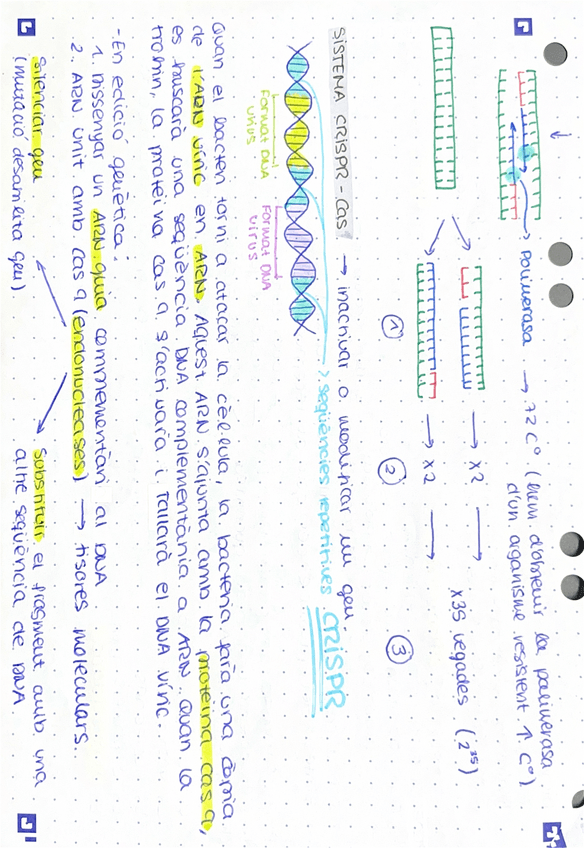 Polimerasa → 72 Cº (hem d'obtenir la polimerasa
d'un organisme resistent ↑ Cº)
→ x2 →
→ x2 →
x35 vegades (2³⁵)
① ② ③
SISTEMA CRISPR-Cas → inactivar o modificar un gen.
> seqüències repetitives CRISPR
Format DNA
virus
Format DNA
virus
Quan el bacteri torni a atacar la cèl·lula, la bacteria farà una còpia
de l'ARN víric en ARN. Aquest ARN s'ajunta amb la proteina cas 9,
es buscarà una seqüència DNA complementària a ARN quan la
trobin, la proteina cas 9 s'activarà i tallarà el DNA víric.
-En edició genètica:
1. Dissenyar un ARN guia complementari al DNA
2. ARN unit amb cas 9 (endonucleases) → tisores moleculars.
silenciar gen
(mutació desabilita gen)
substituir el fragment amb una
altre seqüència de DNA